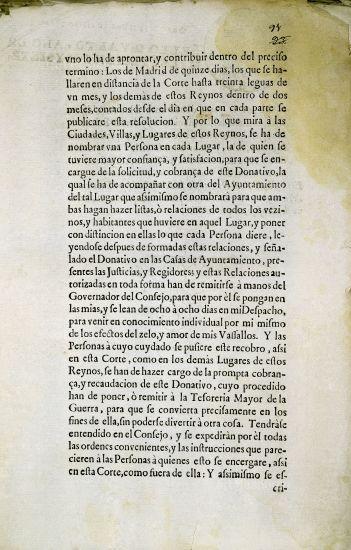 22
vno lo ha de aprontar, y contribuir dentro del preciso
termino: Los de Madrid de quinze dias, los que se ha-
llaren en distancia de la Corte hasta treinta leguas de
vn mes, y los demàs de estos Reynos dentro de dos
meses, contados desde el dia en que en cada parte se
publicare esta resolucion. Y por lo que mira à las
Ciudades, Villas, y Lugares de estos Reynos, se ha de
nombrar vna Persona en cada Lugar, la de quien se
tuviere mayor confiança, y satisfacion, para que se en-
cargue de la solicitud, y cobrança de este Donativo, la
qual se ha de acompañar con otra del Ayuntamiento
del tal Lugar que assimismo se nombrarà para que am-
bas hagan hazer listas, ò relaciones de todos los vezi-
nos, y habitantes que huviere en aquel Lugar, y poner
con distincion en ellas lo que cada Persona diere, le-
yendose despues de formadas estas relaciones, y seña-
lado el Donativo en las Casas de Ayuntamiento, pre-
sentes las Justicias, y Regidores: y estas Relaciones au-
torizadas en toda forma han de remitirse à manos del
Governador del Consejo, para que por èl se pongan en
las mias, y se lean de ocho à ocho dias en mi Despacho,
para venir en conocimiento individual por mi mismo
de los efectos del zelo, y amor de mis Vassallos. Y las
Personas à cuyo cuydado se pusiere este recobro, assi
en esta Corte, como en los demàs Lugares de estos
Reynos, se han de hazer cargo de la prompta cobran-
ça, y recaudacion de este Donativo, cuyo procedido
han de poner, ò remitir à la Tesoreria Mayor de la
Guerra, para que se convierta precisamente en los
fines de ella, sin poderse divertir à otra cosa. Tendràse
entendido en el Consejo, y se expediràn por èl todas
las ordenes convenientes, y las instrucciones que pare-
cieren à las Personas à quienes esto se encargare, assi
en esta Corte, como fuera de ella: Y assimismo se es-
cri-